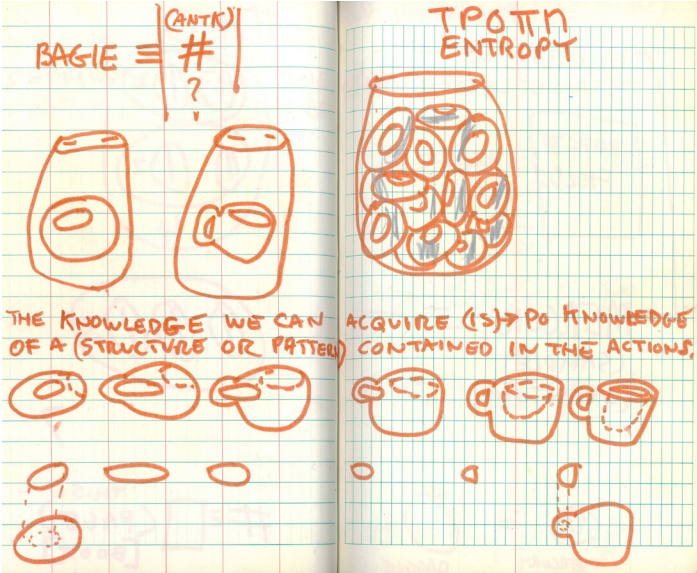 (ANTK)
BAGIE ≡ #
?
ΤΡΟΠΠ
ENTROPY
THE KNOWLEDGE WE CAN ACQUIRE (IS)→ PO KNOWLEDGE
OF A (STRUCTURE OR PATTERN) CONTAINED IN THE ACTIONS.